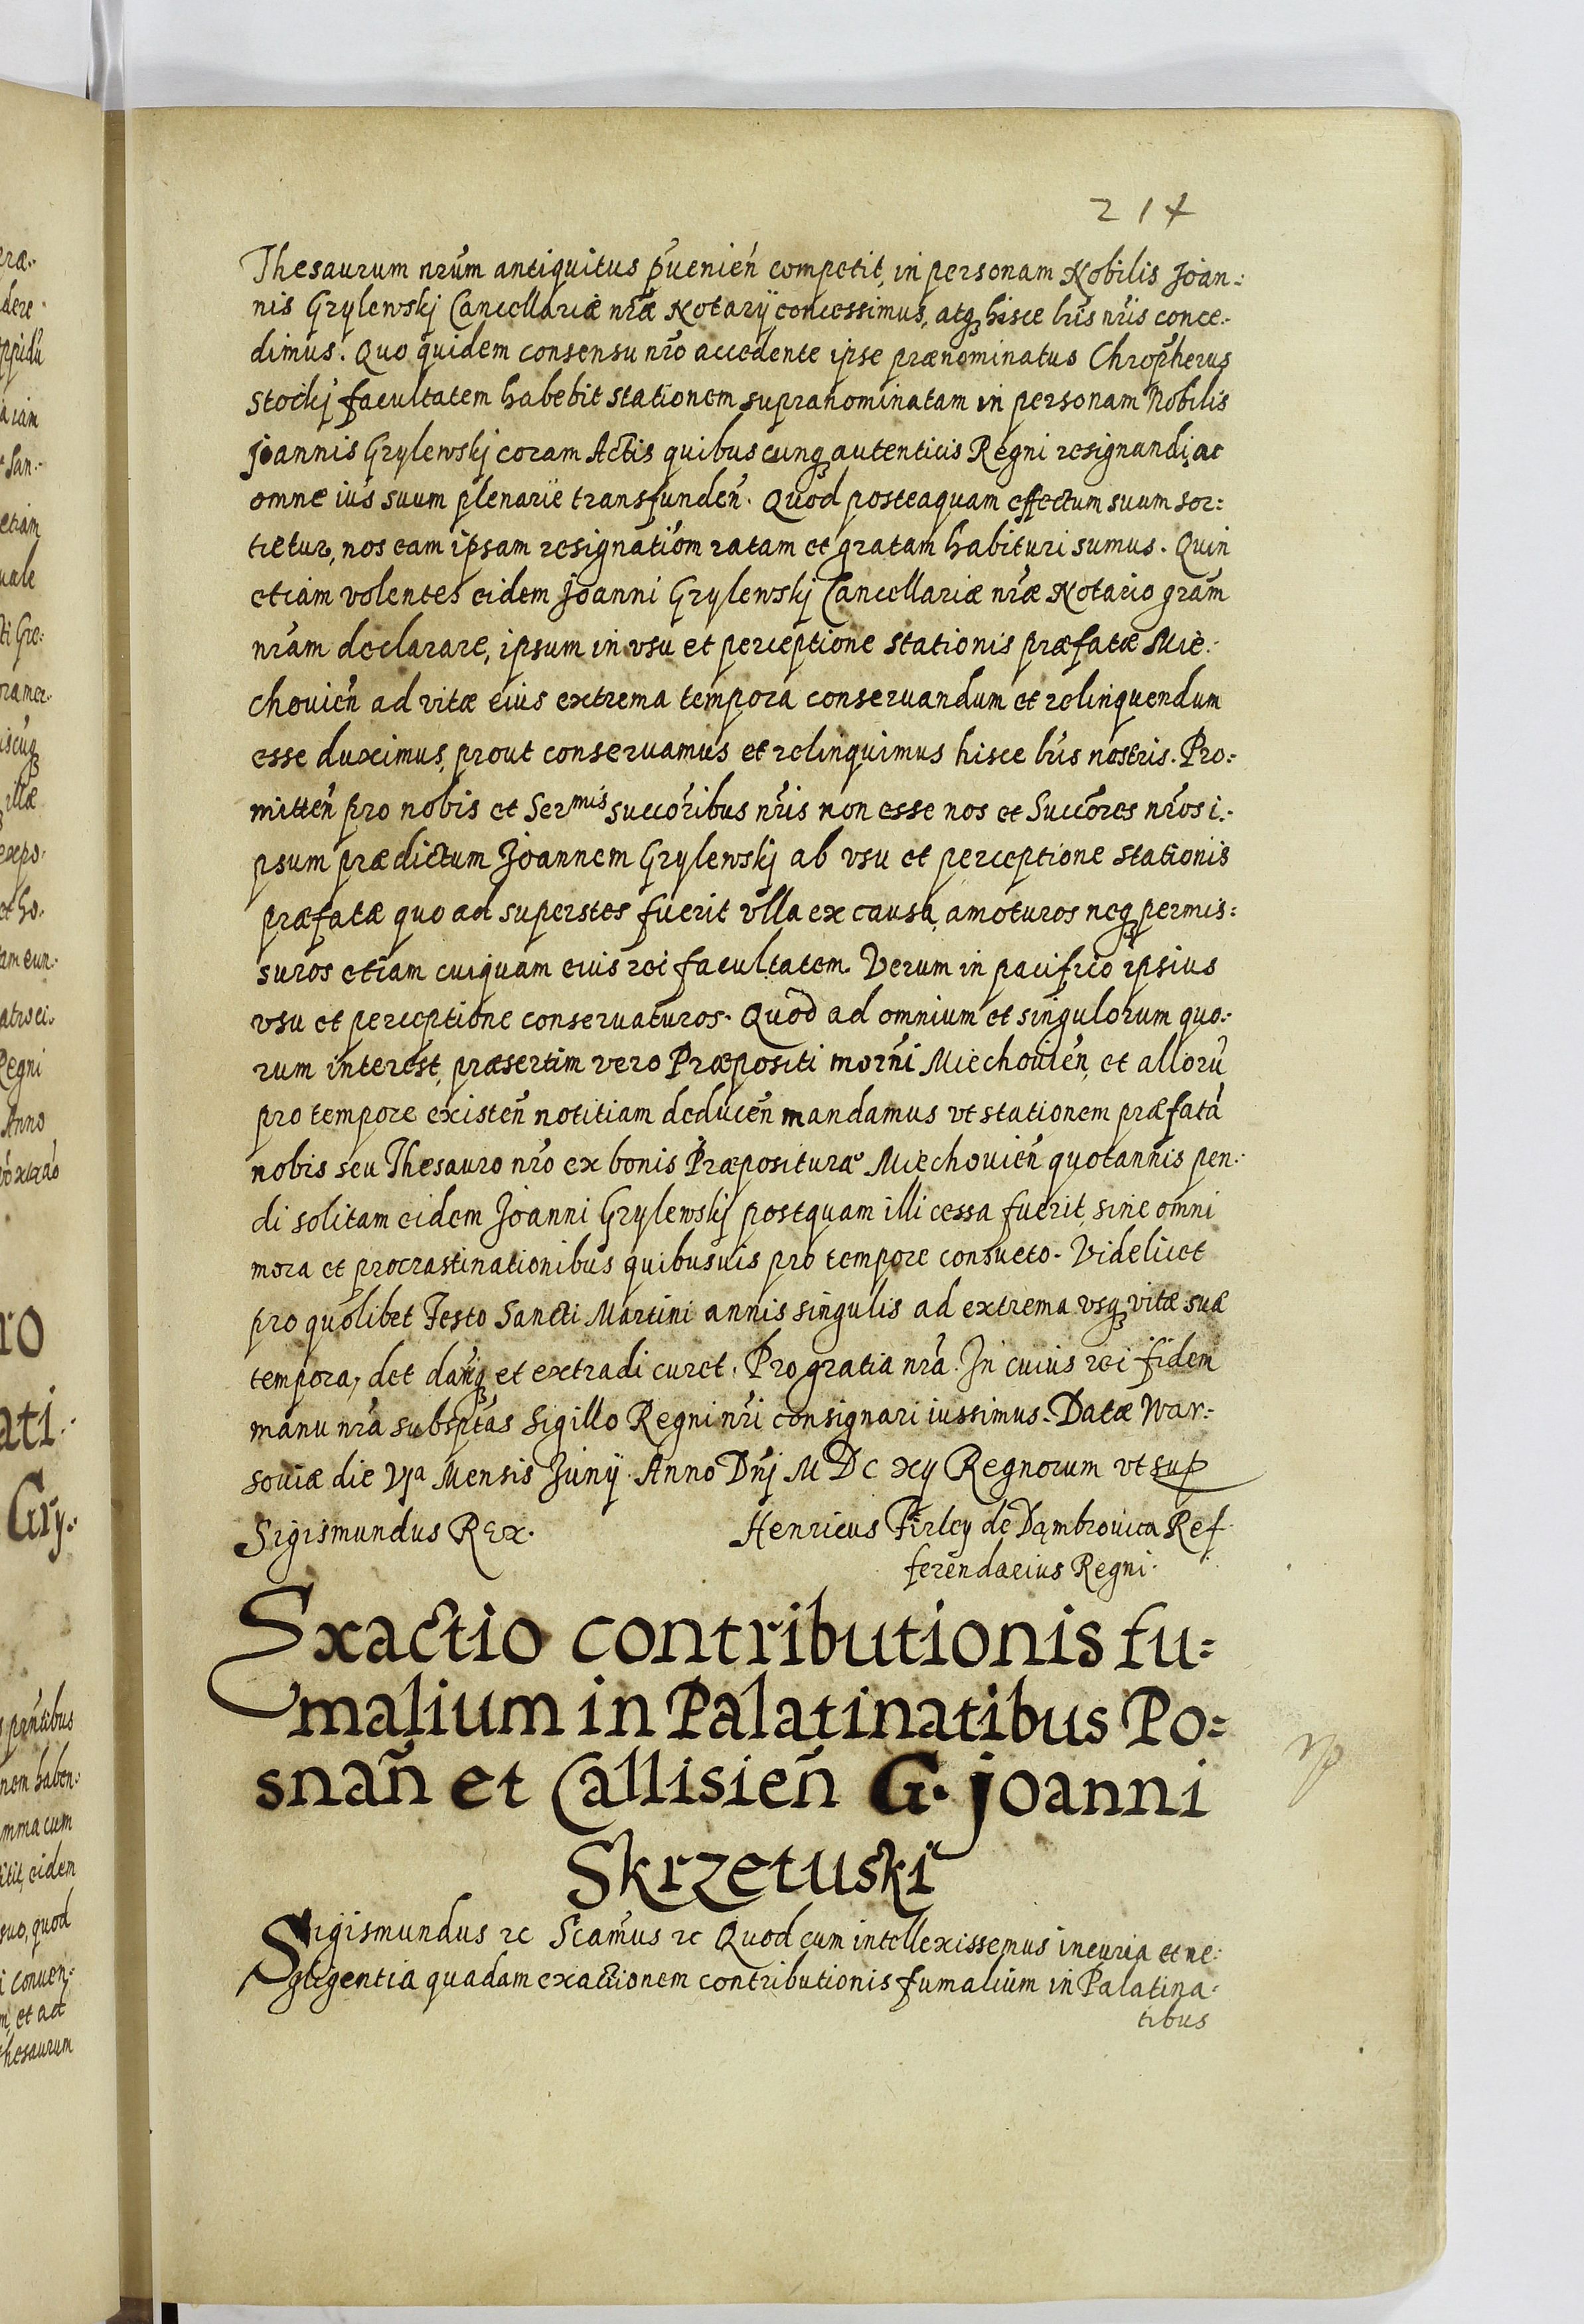 214
Thesaurum nrũm antiquitus p̃uenień competit, in personam Nobilis Joan:
nis Grylewskj Cancellariæ nrã Notarÿ concessimus, atqꝫ hisce lris nrĩs conce:
dimus. Quo quidem consensu nrõ accedente ipse prænominatus Chroṕherus
Stockj facultatem habebit stationem supranominatam in personam Nobilis
Joannis Grylewskj coram Actis quibuscunqꝫ autenticis Regni resignandi, ac
omne ius suum plenarie transfundeñ. Quod posteaquam effectum suum sor:
tietur, nos eam ipsam resignatiõm ratam et gratam habituri sumus. Quin
etiam volentes eidem Joanni Grylewskj Cancellariæ nrẽ Notario grãm
nrãm declarare, ipsum in vsu et perceptione stationis præfatæ Mie:
chouień ad vitæ eius extrema tempora conseruandum et relinquendum
esse duximus, prout conseruamus et relinquimus hisce lrĩs nostris. Pro:
mitteñ pro nobis et Serᵐⁱˢ succorĩbus nrĩs non esse nos et Succõres nrõs i:
psum prædictum Joannem Grylewskj ab vsu et perceptione stationis
præfatæ quo ad superstes fuerit vlla ex causa, amoturos neqꝫ permis:
suros etiam cuiquam eius rei facultatem. Verum in pacifico ipsius
vsu et perceptione conseruaturos. Quod ad omnium et singulorum quo:
rum interest, præsertim vero Præpositi morñi Miechouień, et alioru᷑
pro tempore existeñ notitiam deduceñ mandamus vt stationem præfatã
nobis seu Thesauro nrõ ex bonis Præposituræ Miechouień quotannis pen:
di solitam eidem Joanni Grylewskj postquam illi cessa fuerit, sine omni
mora et procrastinationibus quibusuis pro tempore consueto. Videlicet
pro quolibet Festo Sancti Martini annis singulis ad extrema vsqꝫ vitæ suæ
tempora, det dariqꝫ et extradi curet. Pro gratia nrã. In cuius rei fidem
manu nrã subsptãs Sigillo Regni nrĩ consignari iussimus. Datæ War:
souiæ die Vjᵃ Mensis Junÿ. Anno Dñj M DC xy Regnorum vt sup
Sigismundus Rex.
Henricus Firley de Dąmbrouica Ref
ferendarius Regni.
Exactio contributionis fu:
malium in Palatinatibus Po:
snañ et Callisieñ G. Joanni
Skrzetuski
Sigismundus ꝛc Scamũs ꝛc Quod cum intellexissemus incuria et ne:
gligentia quadam exactionem contributionis fumalium in Palatina:
tibus